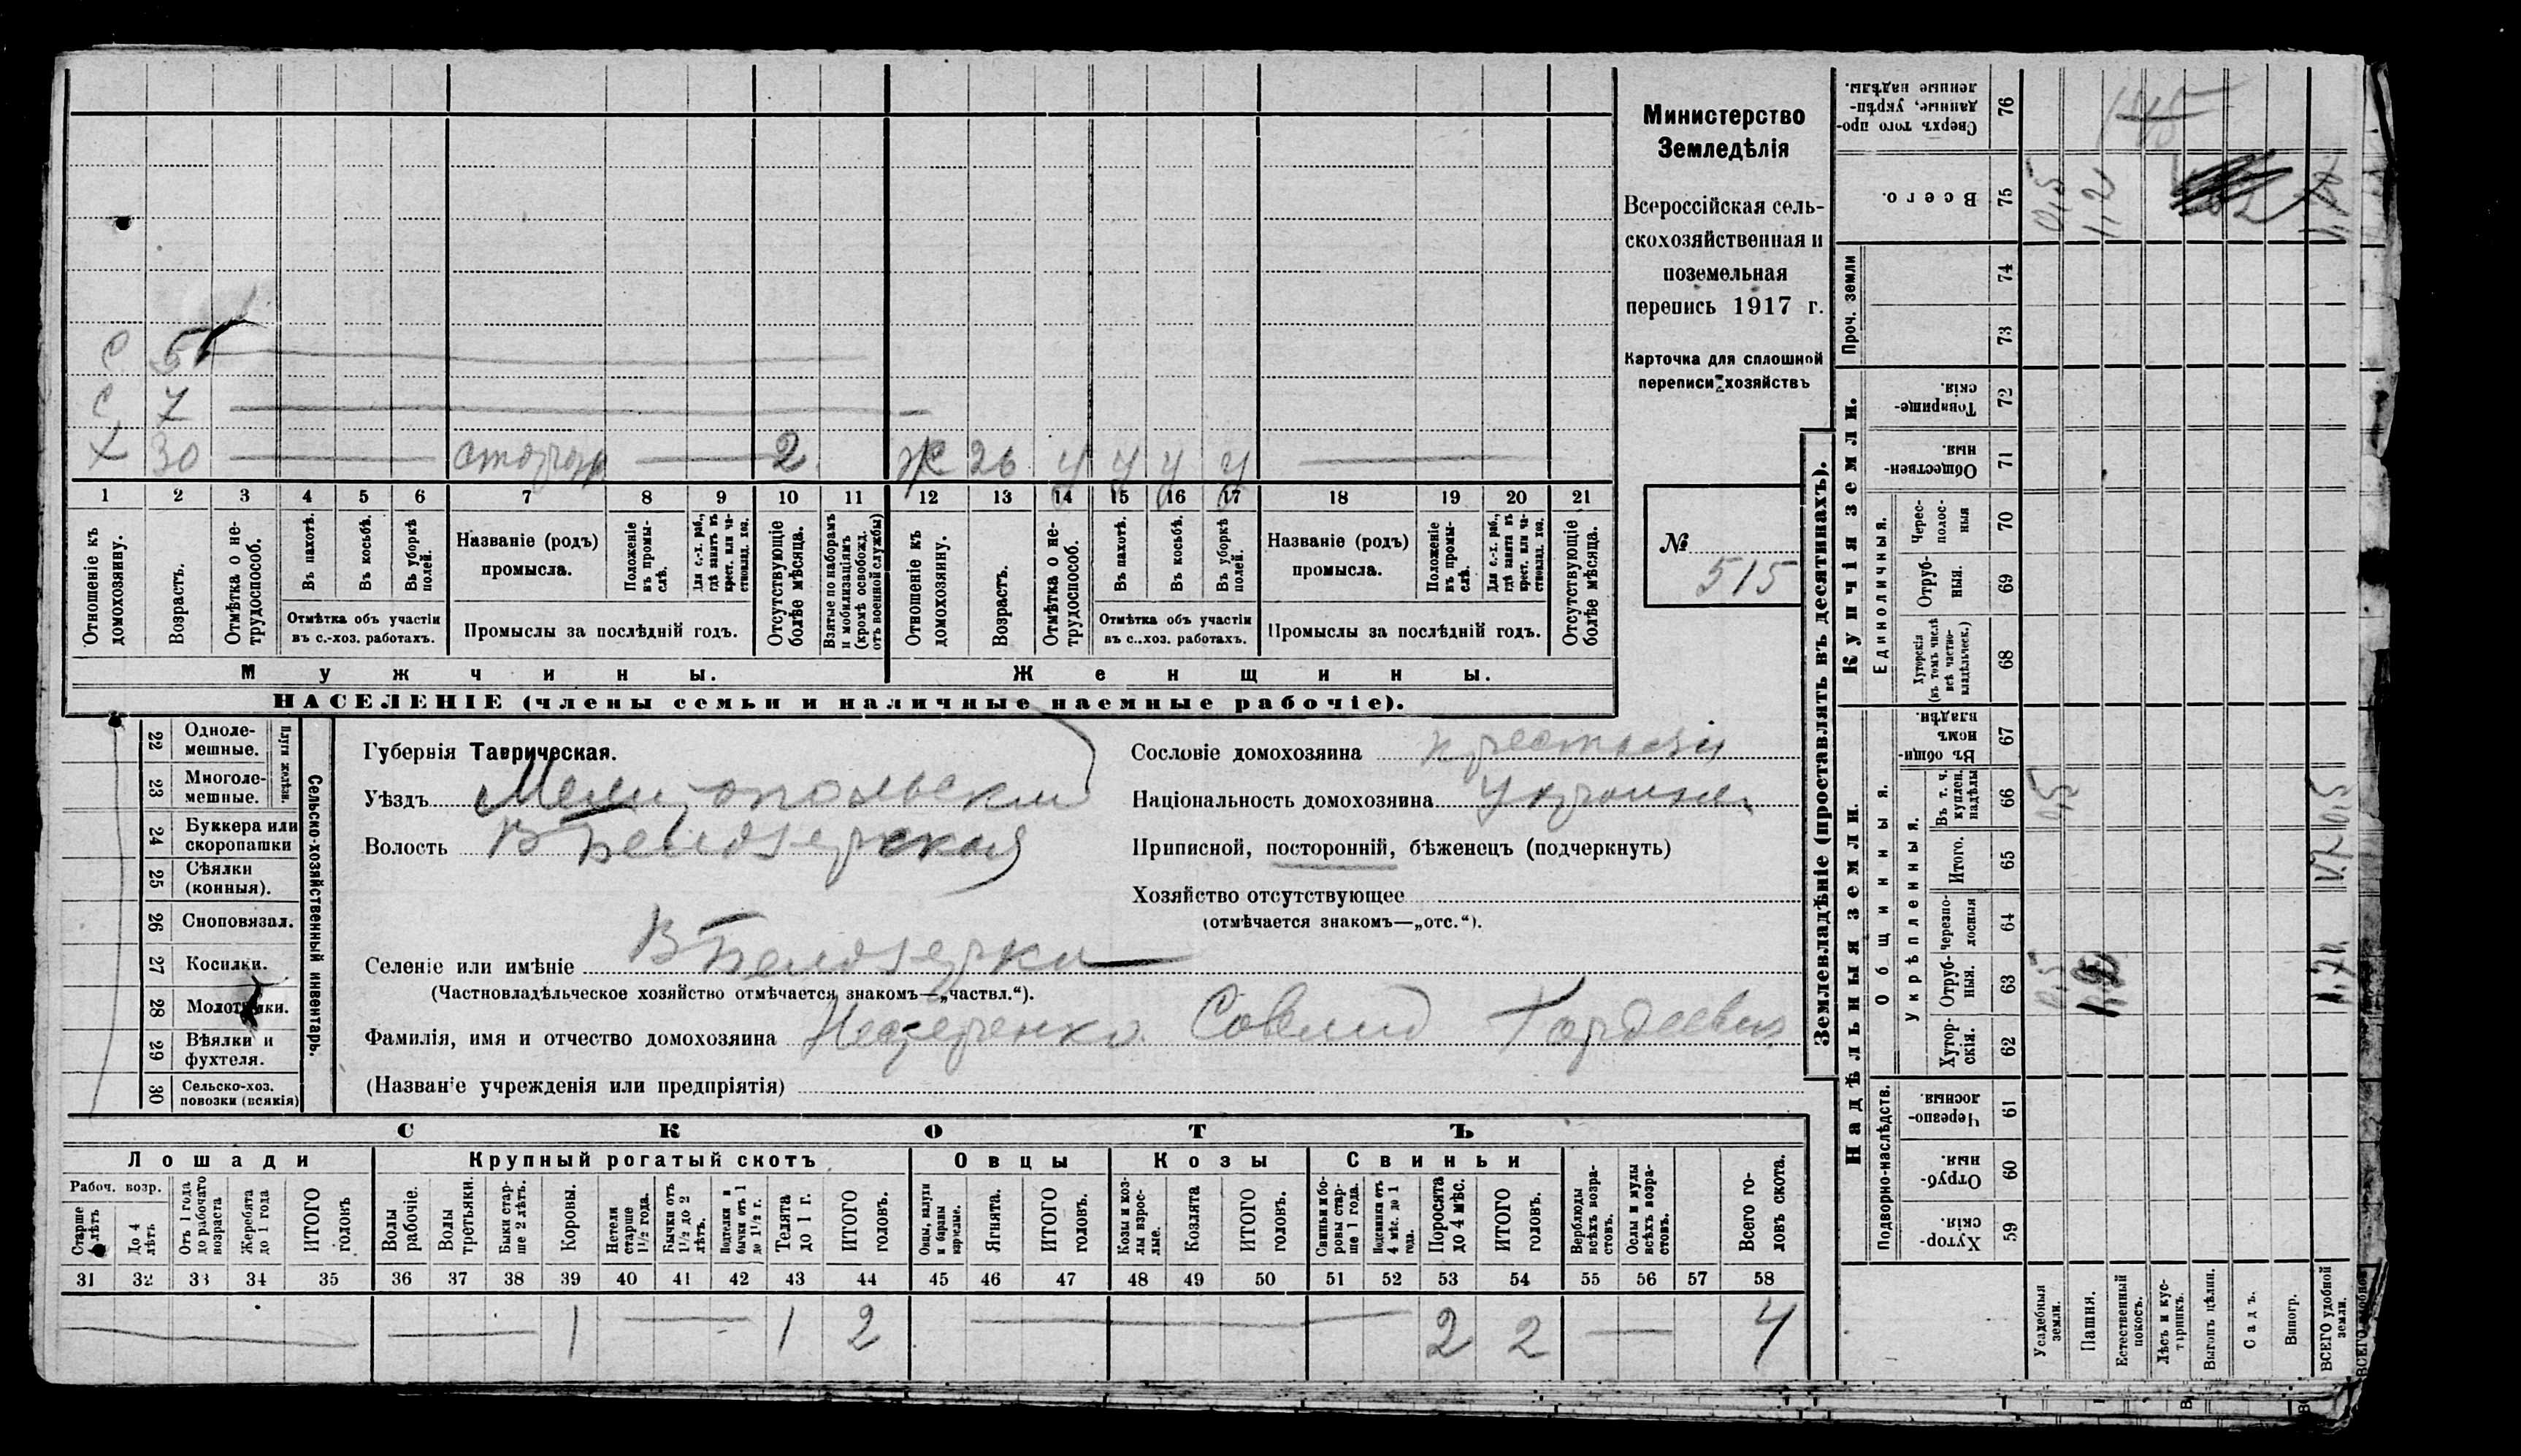 С 5
С 7
Х 30 сторож 2 Ж 26 у у у у
1 2 3 4 5 6 7 8 9 10 11 12 13 14 15 16 17 18 19 20 21
Отношеніе къ домохозяину.
Возрастъ.
Отмѣтка о не-
трудоспособ.
Въ пахотѣ.
Въ косьбѣ.
Въ уборкѣ
полей.
Отмѣтка объ участіи
въ с.-хоз. работахъ.
Названіе (родъ)
промысла.
Положеніе
въ промы-
слѣ.
Для с.-х. раб.,
гдѣ занятъ въ
крест. или ча-
стновлад. хоз.
Промыслы за послѣдній годъ.
Отсутствующіе
болѣе мѣсяца.
Взятые по наборамъ
и мобилизаціямъ
(кромѣ освобожд.
отъ военной службы)
Отношеніе къ
домохозяину.
Возрастъ.
Отмѣтка о не-
трудоспособ.
Въ пахотѣ.
Въ косьбѣ.
Въ уборкѣ
полей.
Отмѣтка объ участіи
въ с..хоз. работахъ.
Названіе (родъ)
промысла.
Положеніе
въ промы-
слѣ.
Для с.-х. раб.,
гдѣ занята въ
крест. или ча-
стновлад. хоз.
Промыслы за послѣдній годъ.
Отсутствующіе
болѣе мѣсяца.
Мужчины.
Женщины.
НАСЕЛЕНІЕ (члены семьи и наличные наемные рабочіе).
Министерство
Земледѣлія
Всероссійская сель-
скохозяйственная и
поземельная
перепись 1917 г.
Карточка для сплошной
переписи хозяйствъ
№ 515
22 Одноле-
мешные.
23 Многоле-
мешные.
Плуги желѣзн.
24 Буккера или
скоропашки
25 Сѣялки
(конныя).
26 Сноповязал.
27 Косилки.
28 Молотилки.
29 Вѣялки и
фухтеля.
30 Сельско-хоз.
повозки (всякія)
Сельско-хозяйственный инвентарь.
Губернія Таврическая.
Уѣздъ Мелитопольский
Волость В Белозерская
Селеніе или имѣніе В Белозерка
(Частновладѣльческое хозяйство отмѣчается знакомъ—„частвл.“).
Фамилія, имя и отчество домохозяина Нестеренко Савелий Гордеевич
(Названіе учрежденія или предпріятія)
Сословіе домохозяина крестьян
Національность домохозяина Украинец
Приписной, посторонній, бѣженецъ (подчеркнуть)
Хозяйство отсутствующее
(отмѣчается знакомъ—„отс.“).
СКОТЪ
Лошади
Крупный рогатый скотъ
Овцы
Козы
Свиньи
Рабоч. возр.
Старше
4 лѣтъ
До 4
лѣтъ
Отъ 1 года
до рабочаго
возраста
Жеребята
до 1 года
ИТОГО
головъ
Волы
рабочіе.
Волы
третьяки.
Быки стар-
ше 2 лѣтъ.
Коровы.
Нетели
старше
1½ года.
Бычки отъ
1½ до 2
лѣтъ.
Подтелки и
бычки отъ 1
до 1½ г.
Телята
до 1 г.
ИТОГО
головъ.
Овцы, валухи
и бараны
взрослые.
Ягнята.
ИТОГО
головъ.
Козы и коз-
лы взрос-
лые.
Козлята
ИТОГО
головъ.
Свиньи и бо-
ровы стар-
ше 1 года.
Подсвинки отъ
4 мѣс. до 1
года.
Поросята
до 4 мѣс.
ИТОГО
головъ.
Верблюды
всѣхъ возра-
стовъ.
Ослы и мулы
всѣхъ возра-
стовъ.
Всего го-
ловъ скота.
31 32 33 34 35 36 37 38 39 40 41 42 43 44 45 46 47 48 49 50 51 52 53 54 55 56 57 58
1 1 2 2 2 4
Землевладѣніе (проставлять въ десятинахъ).
Надѣльныя земли.
Купчія земли.
Проч. земли
Подворно-наслѣдств.
Общинныя.
Укрѣпленныя.
Единоличныя.
Сверхъ того про-
данные, укрѣп-
ленные надѣлы. 76
Всего. 75
74
73
Товарище-
скія. 72
Обществен-
ныя. 71
Черес-
полос-
ныя 70
Отруб-
ныя. 69
Хуторскія
(въ томъ числѣ
всѣ частно-
владѣльческ.) 68
Въ общин-
номъ
владѣн. 67
Въ т. ч.
куплен.
надѣлы 66
Итого. 65
черезпо-
лосныя 64
Отруб-
ныя. 63
Хутор-
скія. 62
Черезпо-
лосныя. 61
Отруб-
ныя. 60
Хутор-
скія. 59
Усадебныя
земли.
Пашня.
Естественный
покосъ.
Лѣсъ и кус-
тарникъ.
Выгонъ цѣлин.
Садъ.
Виногр.
ВСЕГО удобной
земли.
0,5
1,2
0,5
0,5